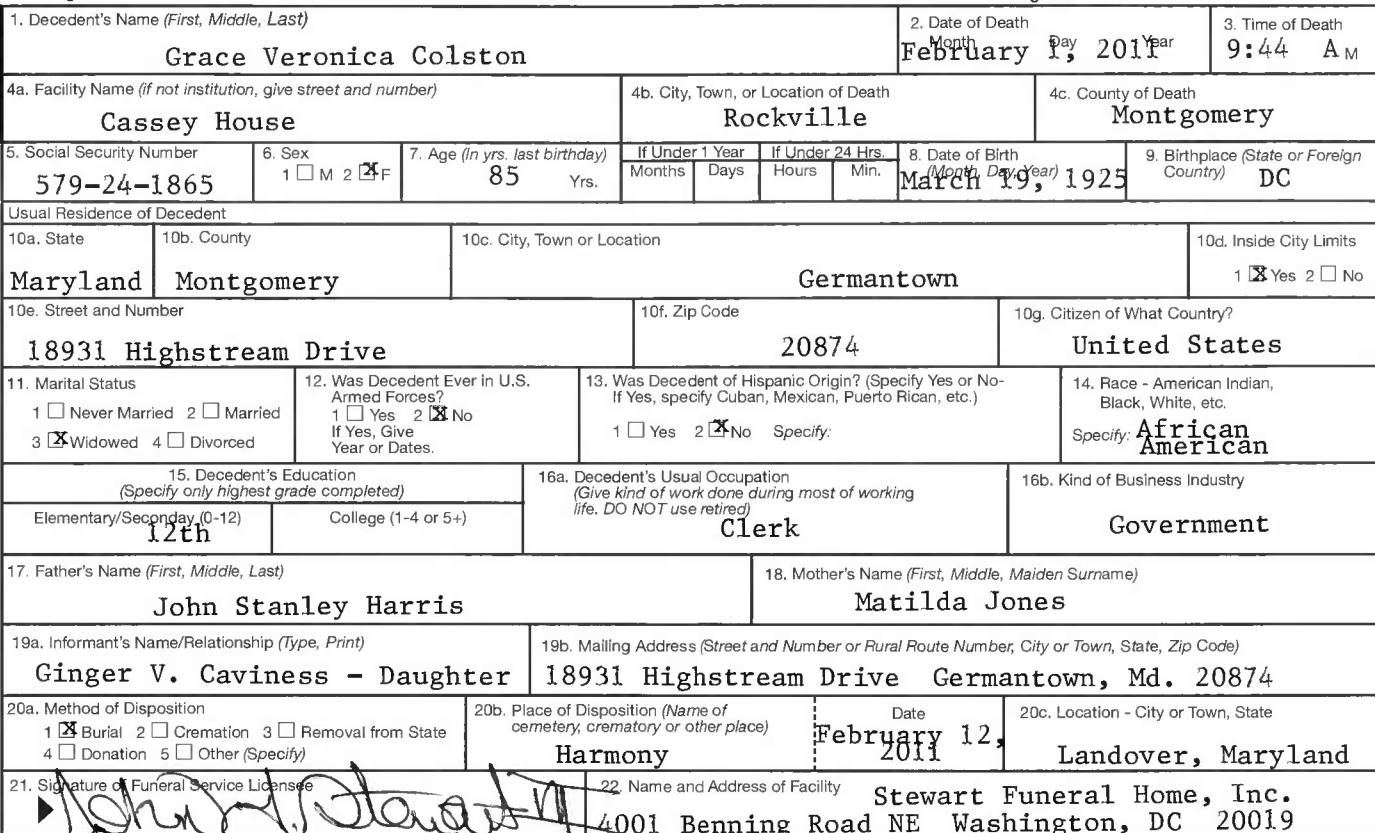 1. Decedent's Name (First, Middle, Last)
Grace Veronica Colston
2. Date of Death
Month Day Year
February 1, 2011
3. Time of Death
9:44 A M
4a. Facility Name (if not institution, give street and number)
Cassey House
4b. City, Town, or Location of Death
Rockville
4c. County of Death
Montgomery
5. Social Security Number
579-24-1865
6. Sex
1 ☐ M 2 ☒ F
7. Age (In yrs. last birthday)
85 Yrs.
If Under 1 Year
Months Days
If Under 24 Hrs.
Hours Min.
8. Date of Birth
(Month, Day, Year)
March 19, 1925
9. Birthplace (State or Foreign
Country) DC
Usual Residence of Decedent
10a. State
Maryland
10b. County
Montgomery
10c. City, Town or Location
Germantown
10d. Inside City Limits
1 ☒ Yes 2 ☐ No
10e. Street and Number
18931 Highstream Drive
10f. Zip Code
20874
10g. Citizen of What Country?
United States
11. Marital Status
1 ☐ Never Married 2 ☐ Married
3 ☒ Widowed 4 ☐ Divorced
12. Was Decedent Ever in U.S.
Armed Forces?
1 ☐ Yes 2 ☒ No
If Yes, Give
Year or Dates.
13. Was Decedent of Hispanic Origin? (Specify Yes or No-
If Yes, specify Cuban, Mexican, Puerto Rican, etc.)
1 ☐ Yes 2 ☒ No Specify:
14. Race - American Indian,
Black, White, etc.
Specify: African
American
15. Decedent's Education
(Specify only highest grade completed)
Elementary/Seconday (0-12)
12th
College (1-4 or 5+)
16a. Decedent's Usual Occupation
(Give kind of work done during most of working
life. DO NOT use retired)
Clerk
16b. Kind of Business Industry
Government
17. Father's Name (First, Middle, Last)
John Stanley Harris
18. Mother's Name (First, Middle, Maiden Surname)
Matilda Jones
19a. Informant's Name/Relationship (Type, Print)
Ginger V. Caviness - Daughter
19b. Mailing Address (Street and Number or Rural Route Number, City or Town, State, Zip Code)
18931 Highstream Drive Germantown, Md. 20874
20a. Method of Disposition
1 ☒ Burial 2 ☐ Cremation 3 ☐ Removal from State
4 ☐ Donation 5 ☐ Other (Specify)
20b. Place of Disposition (Name of
cemetery, crematory or other place)
Harmony
Date
February 12,
2011
20c. Location - City or Town, State
Landover, Maryland
21. Signature of Funeral Service Licensee
22. Name and Address of Facility Stewart Funeral Home, Inc.
4001 Benning Road NE Washington, DC 20019